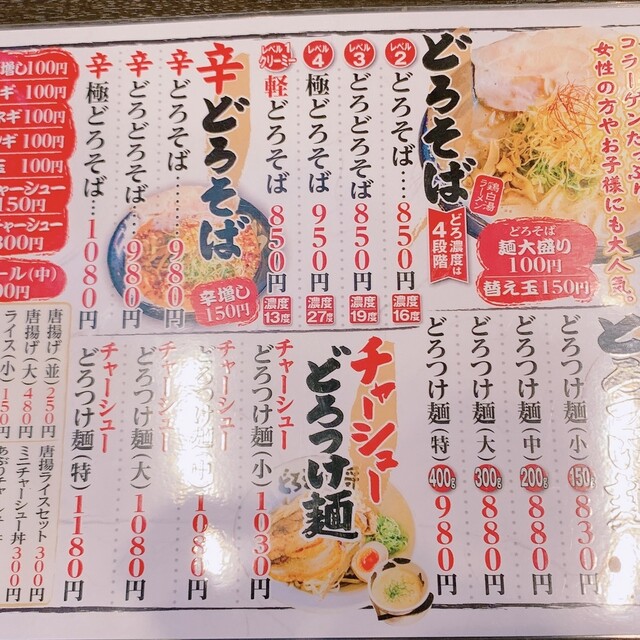 コラーゲンたっぷ
女性の方やお子様にも大人気。
鶏白湯
ラーメン
どろそば
どろ濃度は
4段階
どろそば
麺大盛り
100円
替え玉150円
レベル2
どろそば‥‥850円
濃度16度
レベル3
どろどろそば 850円
濃度19度
レベル4
極どろそば 950円
濃度27度
レベル1
クリーミー
軽どろそば 850円
濃度13度
辛どろそば
辛増し
150円
辛 どろそば……980円
辛 どろどろそば…980円
辛 極どろそば…1080円
増し100円
ギ 100円
ネギ 100円
100円
玉 100円
チャーシュー
150円
チャーシュー
300円
ール(中)
00円
どろつけ麺(小) 150g 830円
どろつけ麺(中) 200g 880円
どろつけ麺(大) 300g 880円
どろつけ麺(特) 400g 980円
チャーシュー
どろつけ麺
チャーシュー
どろつけ麺(小) 1030円
チャーシュー
どろつけ麺(中) 1080円
チャーシュー
どろつけ麺(大) 1080円
チャーシュー
どろつけ麺(特) 1180円
唐揚げ(並) 250円
唐揚げ(大) 480円
ライス(小) 150円
唐揚ライスセット 300円
ミニチャーシュー丼 300円